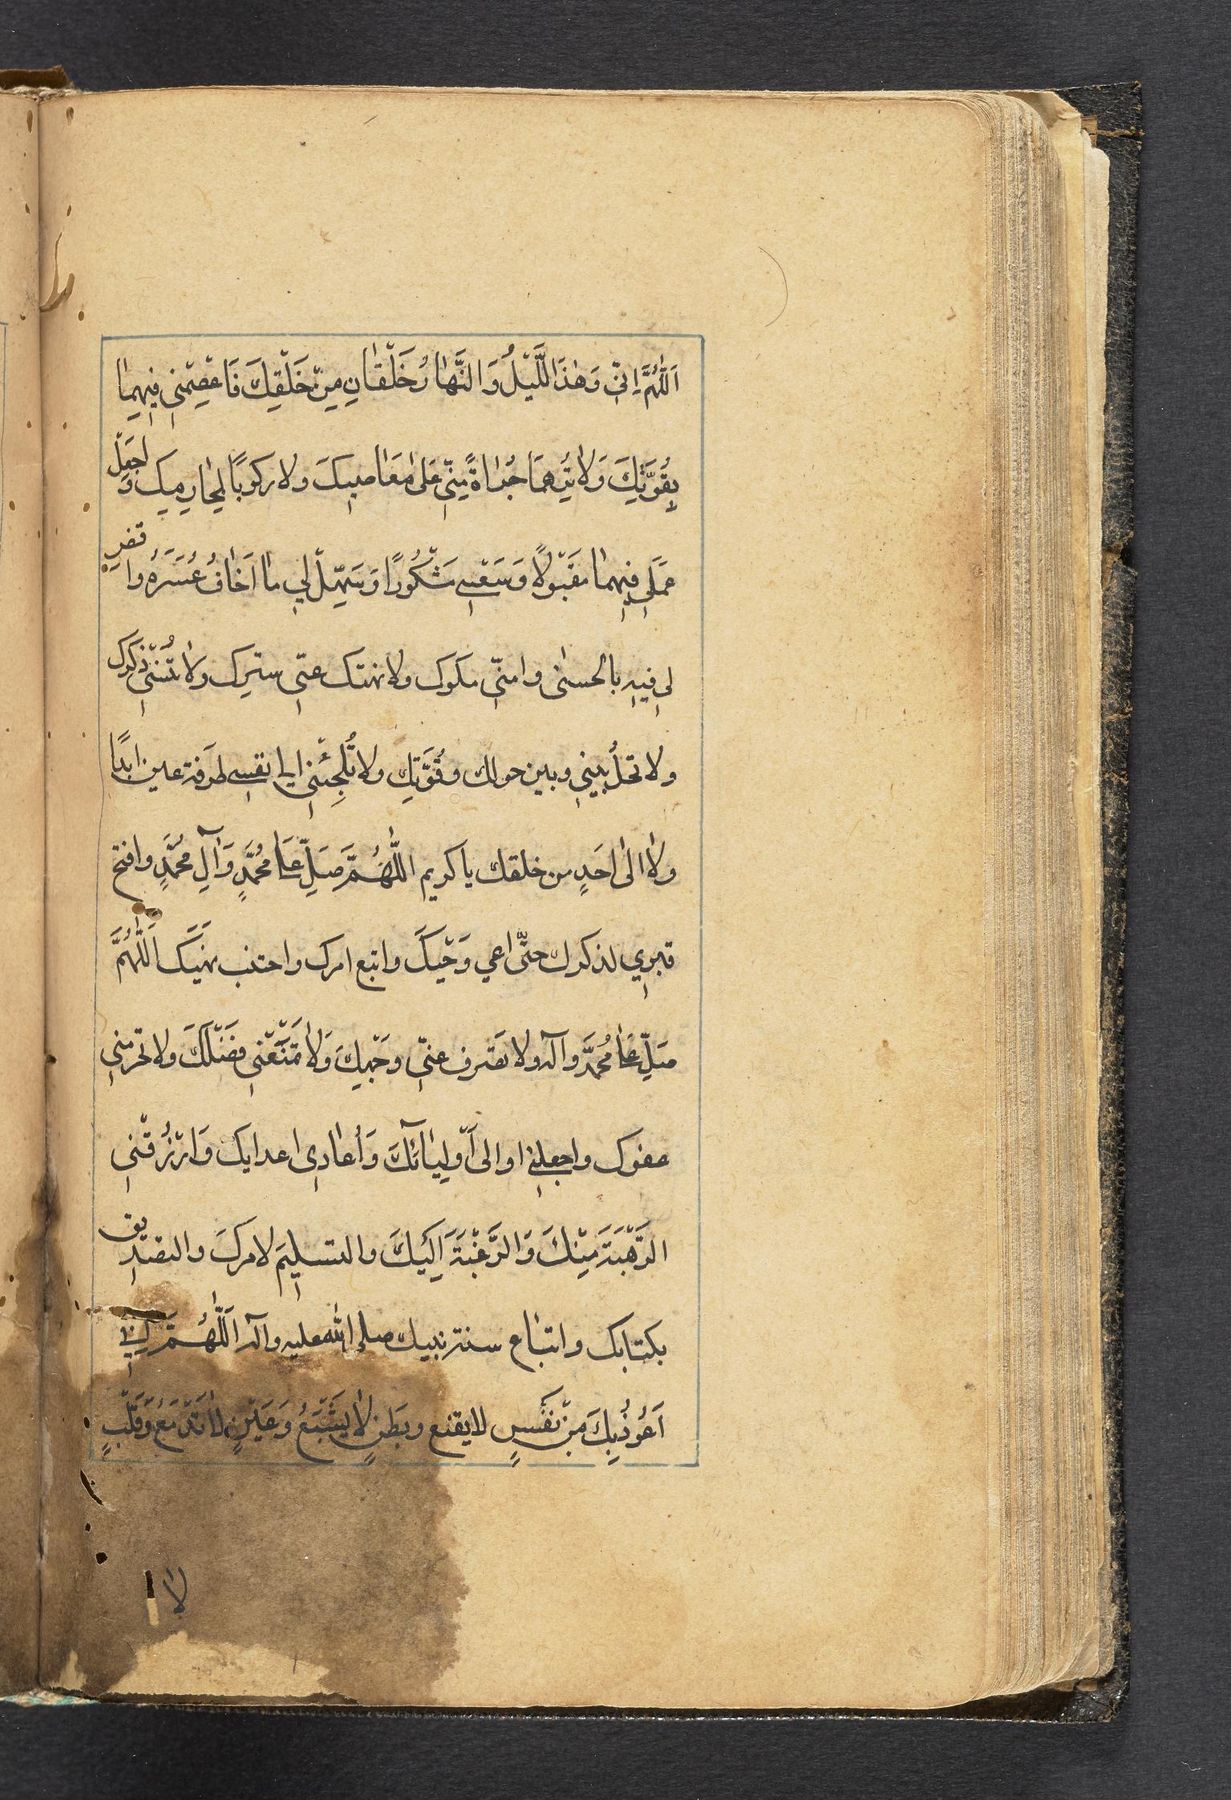 اَللّٰهُمَّ اِنّي وَهٰذَا اللَّيْلُ وَالنَّهٰارُ خَلْقٰانِ مِنْ خَلْقِكَ فَاعْصِمْني فيهِمٰا
بِقُوَّتِكَ وَلٰا تُرِهمَا جُرْاةً مِنّي عَلىٰ مَعَاصيكَ ولا ركوبًا لِمحٰارِمِك وَاجعَلْ
عَمَلي فيهِمٰا مَقْبُولًا وَسَعْيي مَشْكُورًا وَسَهِّلْ لي مٰا اَخٰافُ عُسْرَهُ واقضِ
لي فيهِ بالحسنىٰ وامنّي مكرك ولا تهتك عنّي سترك ولا تُنْسِني ذكرك
ولا تحُلْ بيني وبين حولك وقُوَّتِك ولا تُلْجِئْني الى نفسي طرفة عين ابَدًا
ولا الىٰ احَدٍ من خلقك يا كريم اللّٰهُمَّ صَلِّ عَلىٰ مُحَمَّدٍ وَآلِ مُحَمَّدٍ وافتح
قلبي لذكرك حتّٰى اعي وَحْيَكَ واتبع امرك واجتنب نهيَك اَللّٰهُمَّ
صَلِّ عَلىٰ مُحَمَّدٍ وآله ولا تصرف عنّي وجْهكَ وَلٰا تمْنَعْني فضْلَكَ ولا تحرمني
عفوك واجعلني اوالى اَوْلِيٰائَكَ وَاُعٰادي اعدايك وَارْزُقْني
الرَّهْبَةَ مِنْكَ وَالرَّغْبَةَ اِلَيْكَ والتسليمَ لامركَ والتصديق
بكتابك واتبٰاع سنة نبيك صلى الله عليه وآله اَللّٰهُمَّ اِنّي
اَعُوْذُبِكَ مِنْ نَفْسٍ لا يقنع وبَطْنٍ لٰا يَشْبَعُ وَعَيْنٍ لٰا تَدْمَعُ وَقَلْبٍ
لا